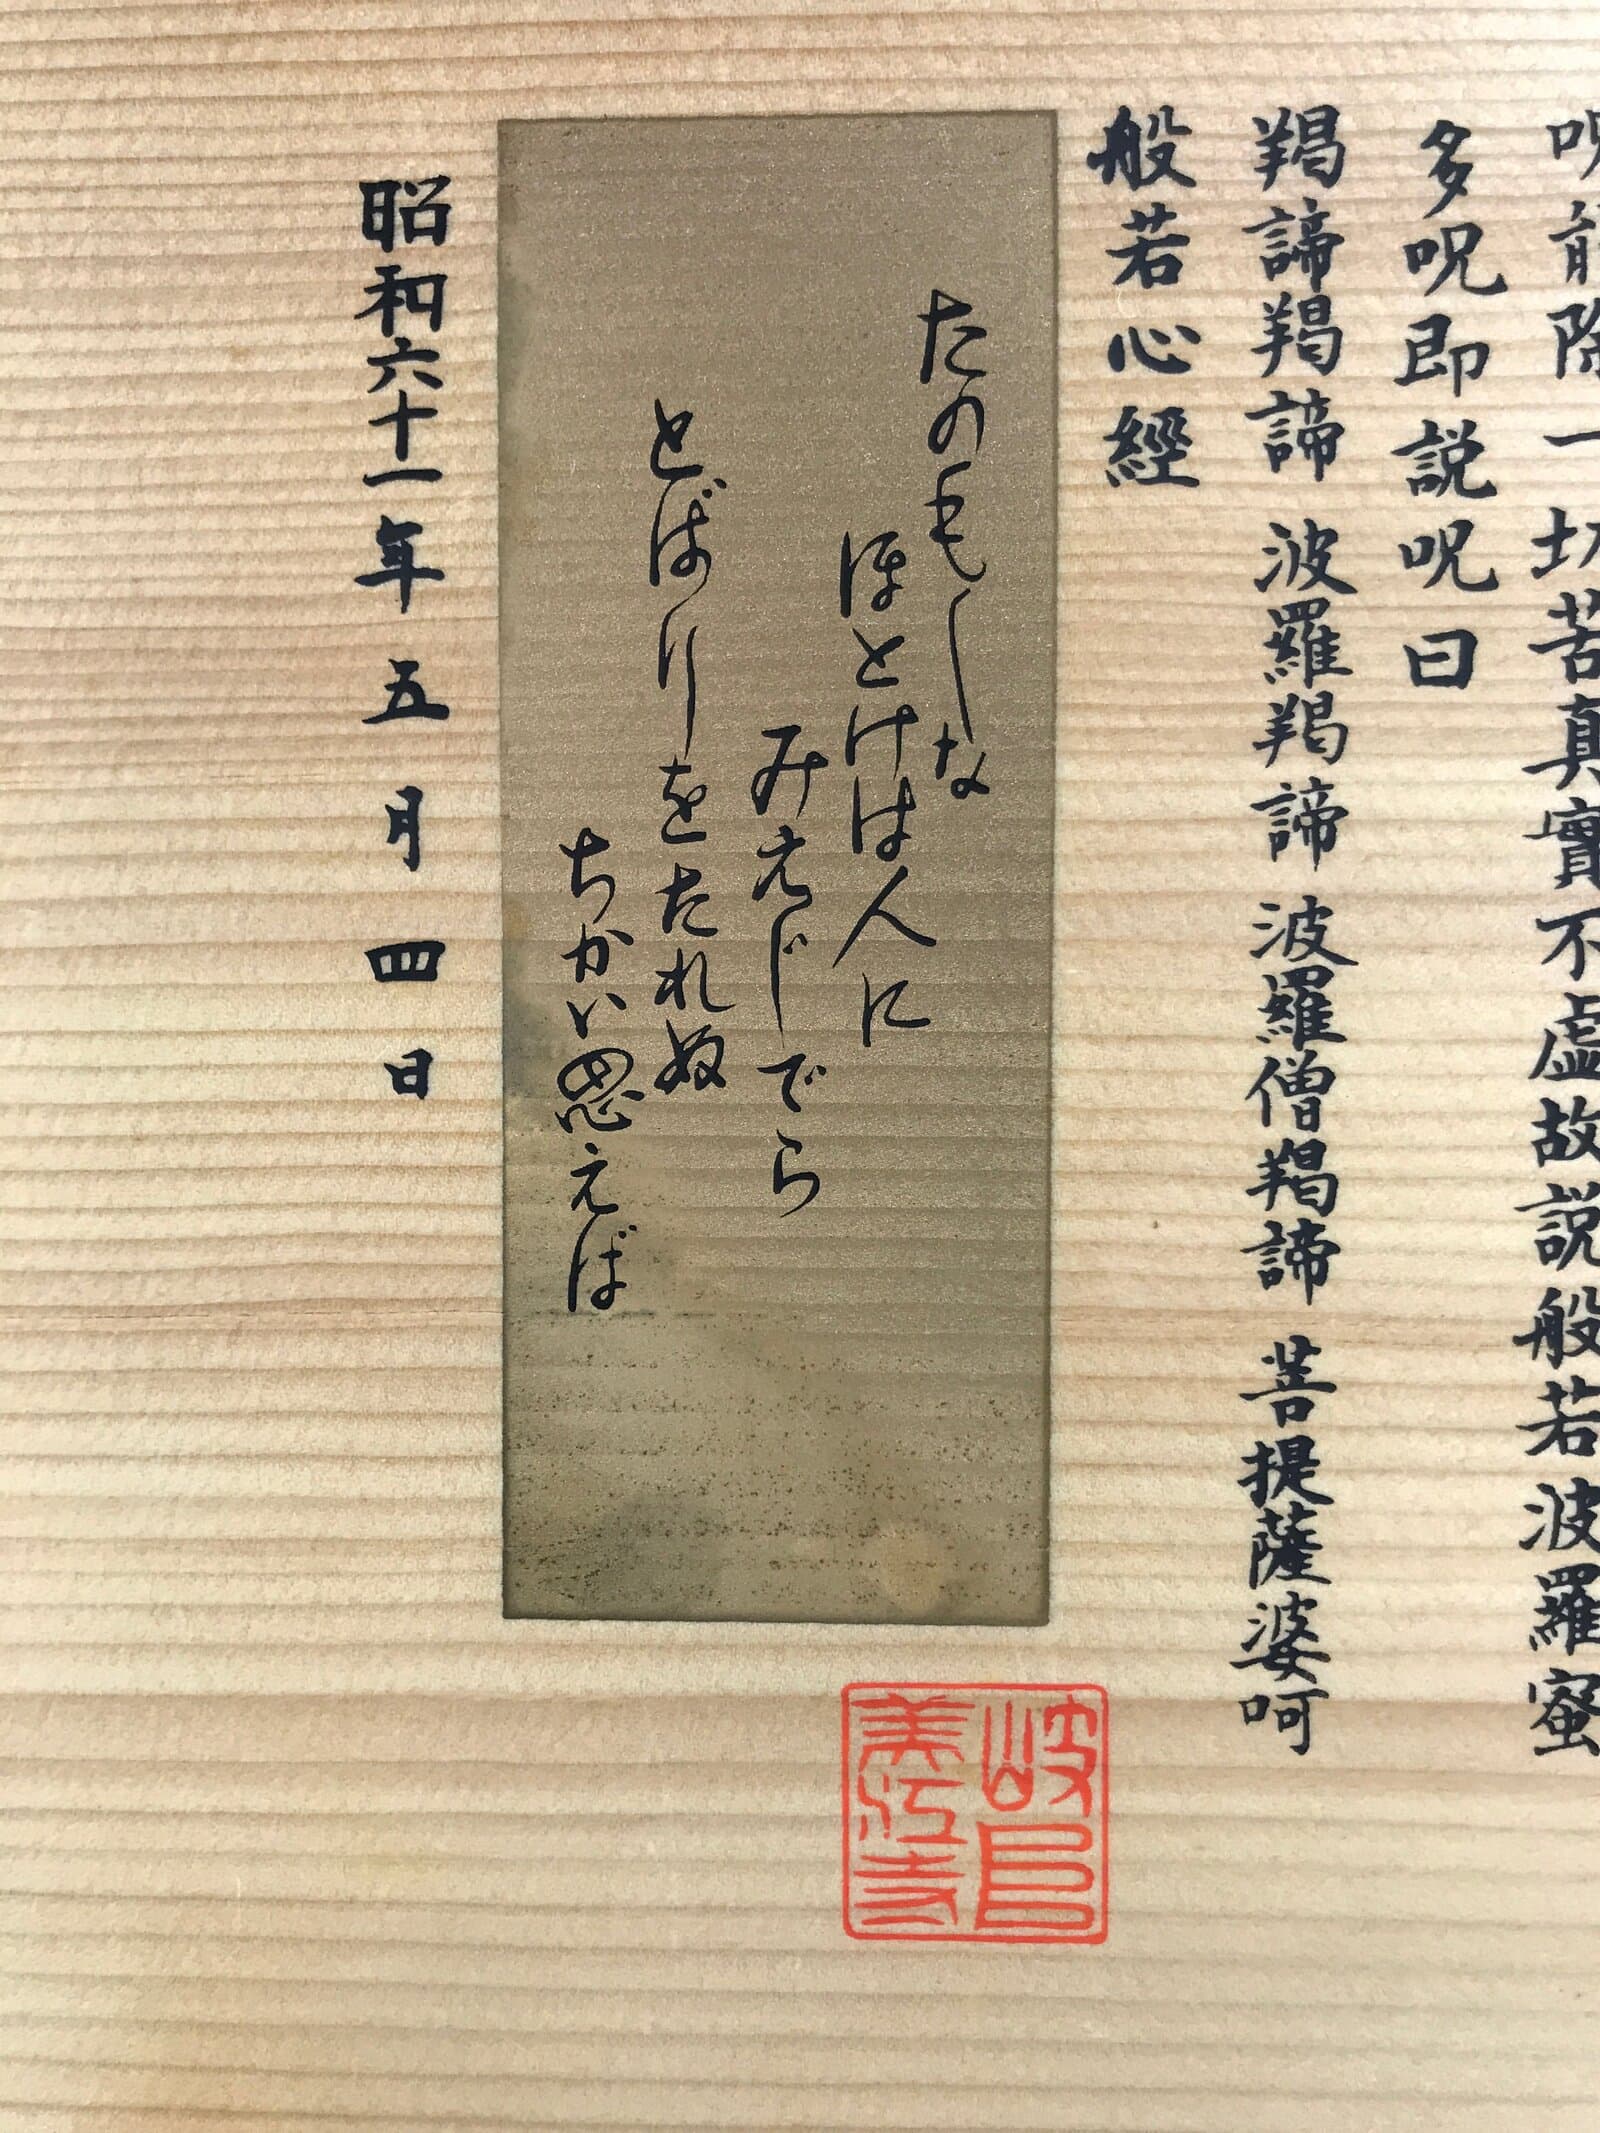 呪能除一切苦真實不虚故説般若波羅蜜
多呪即説呪曰
羯諦羯諦 波羅羯諦 波羅僧羯諦 菩提薩婆呵
般若心經
たの毛しな
ほとけは人に
みえじでら
とばりをたれぬ
ちかい思えば
昭和六十一年五月四日
岐阜
美江寺